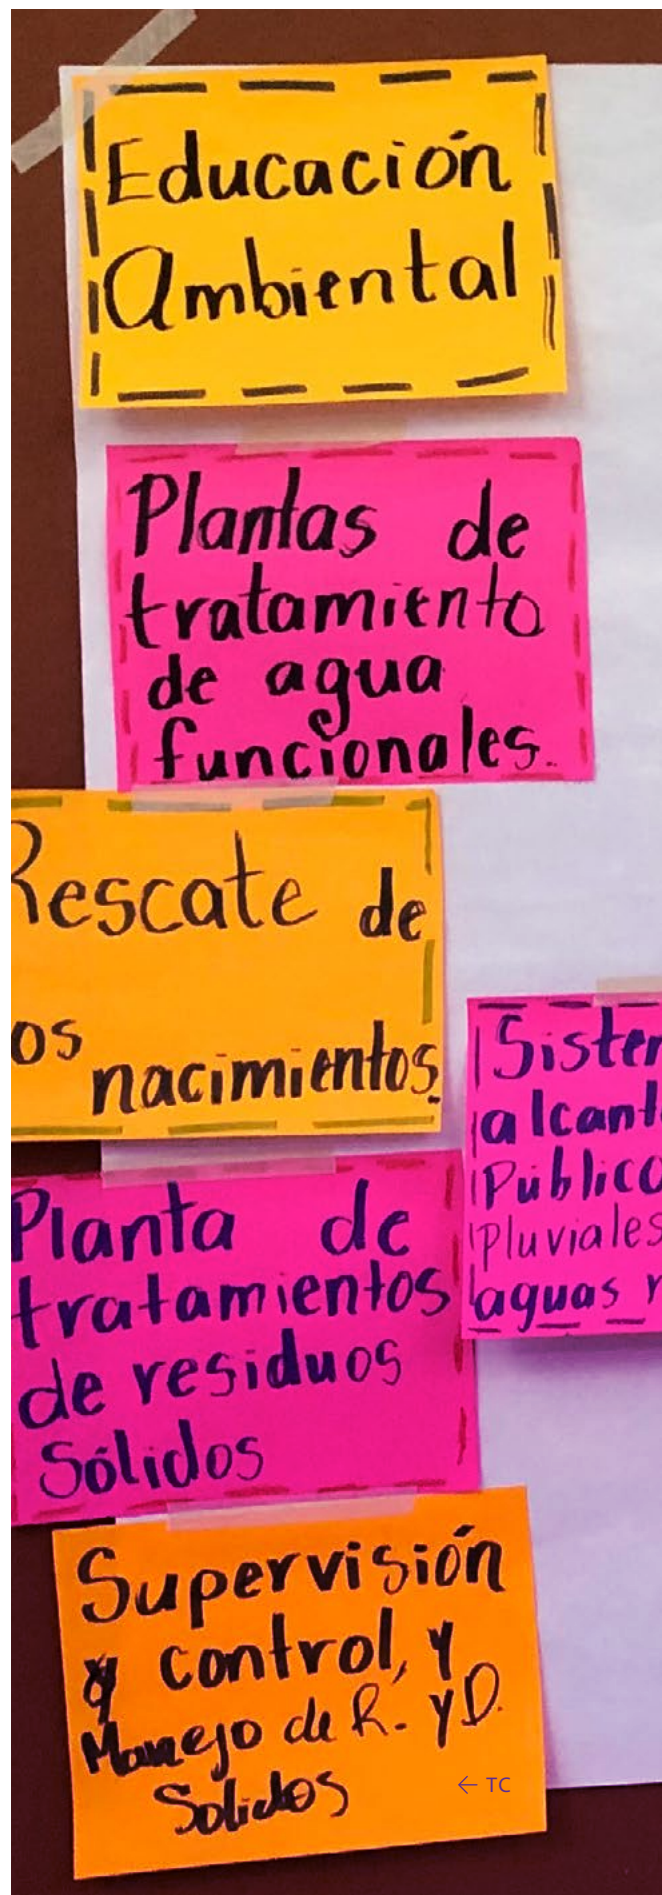 Educación
Ambiental
Plantas de
tratamiento
de agua
funcionales.
Rescate de
os nacimientos.
Sister
alcant
Público
Pluviales
aguas r
Planta de
tratamientos
de residuos
Sólidos
Supervisión
y control, y
Manejo de R. y D.
Solidos
← TC